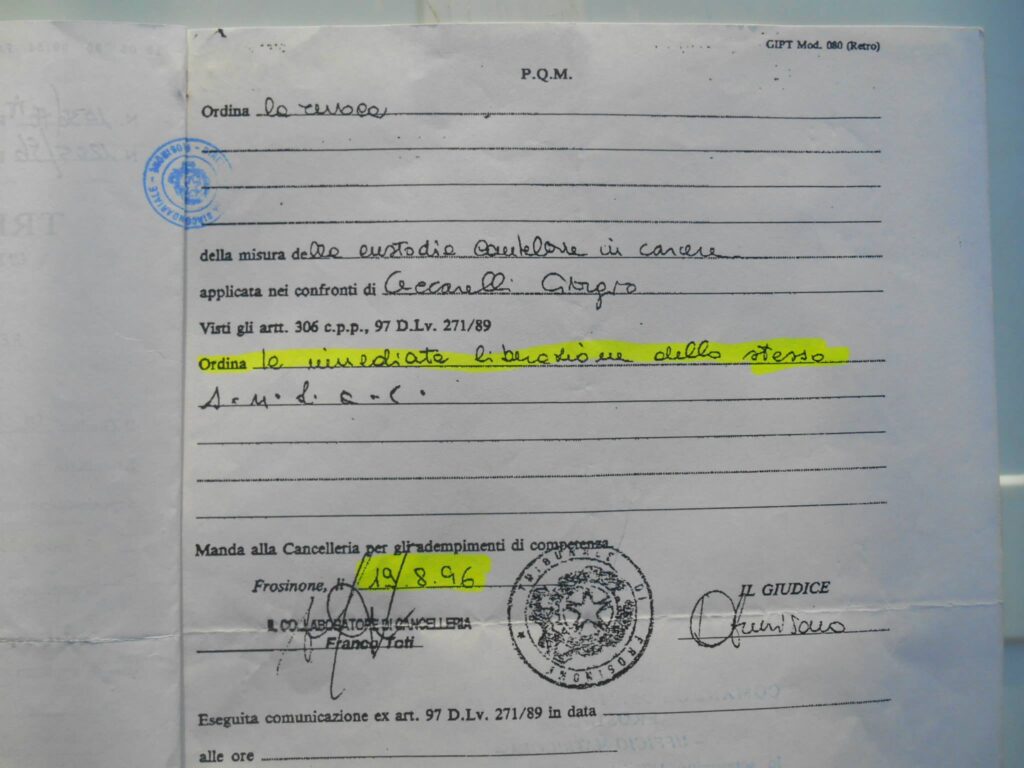 GIPT Mod. 080 (Retro)
P.Q.M.
Ordina la revoca
della misura della custodia cautelare in carcere
applicata nei confronti di Ceccarelli Giorgio
Visti gli artt. 306 c.p.p., 97 D.Lv. 271/89
Ordina la immediata liberazione dello stesso
S. N. D. A. C.
Manda alla Cancelleria per gli adempimenti di competenza
Frosinone, lì 19.8.96
IL COLLABORATORE DI CANCELLERIA
Franco Toti
TRIBUNALE DI FROSINONE
IL GIUDICE
Eseguita comunicazione ex art. 97 D.Lv. 271/89 in data
alle ore